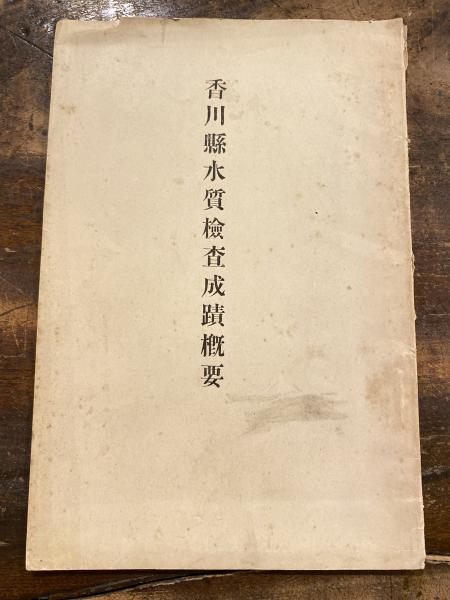 香川縣水質檢査成蹟槪要